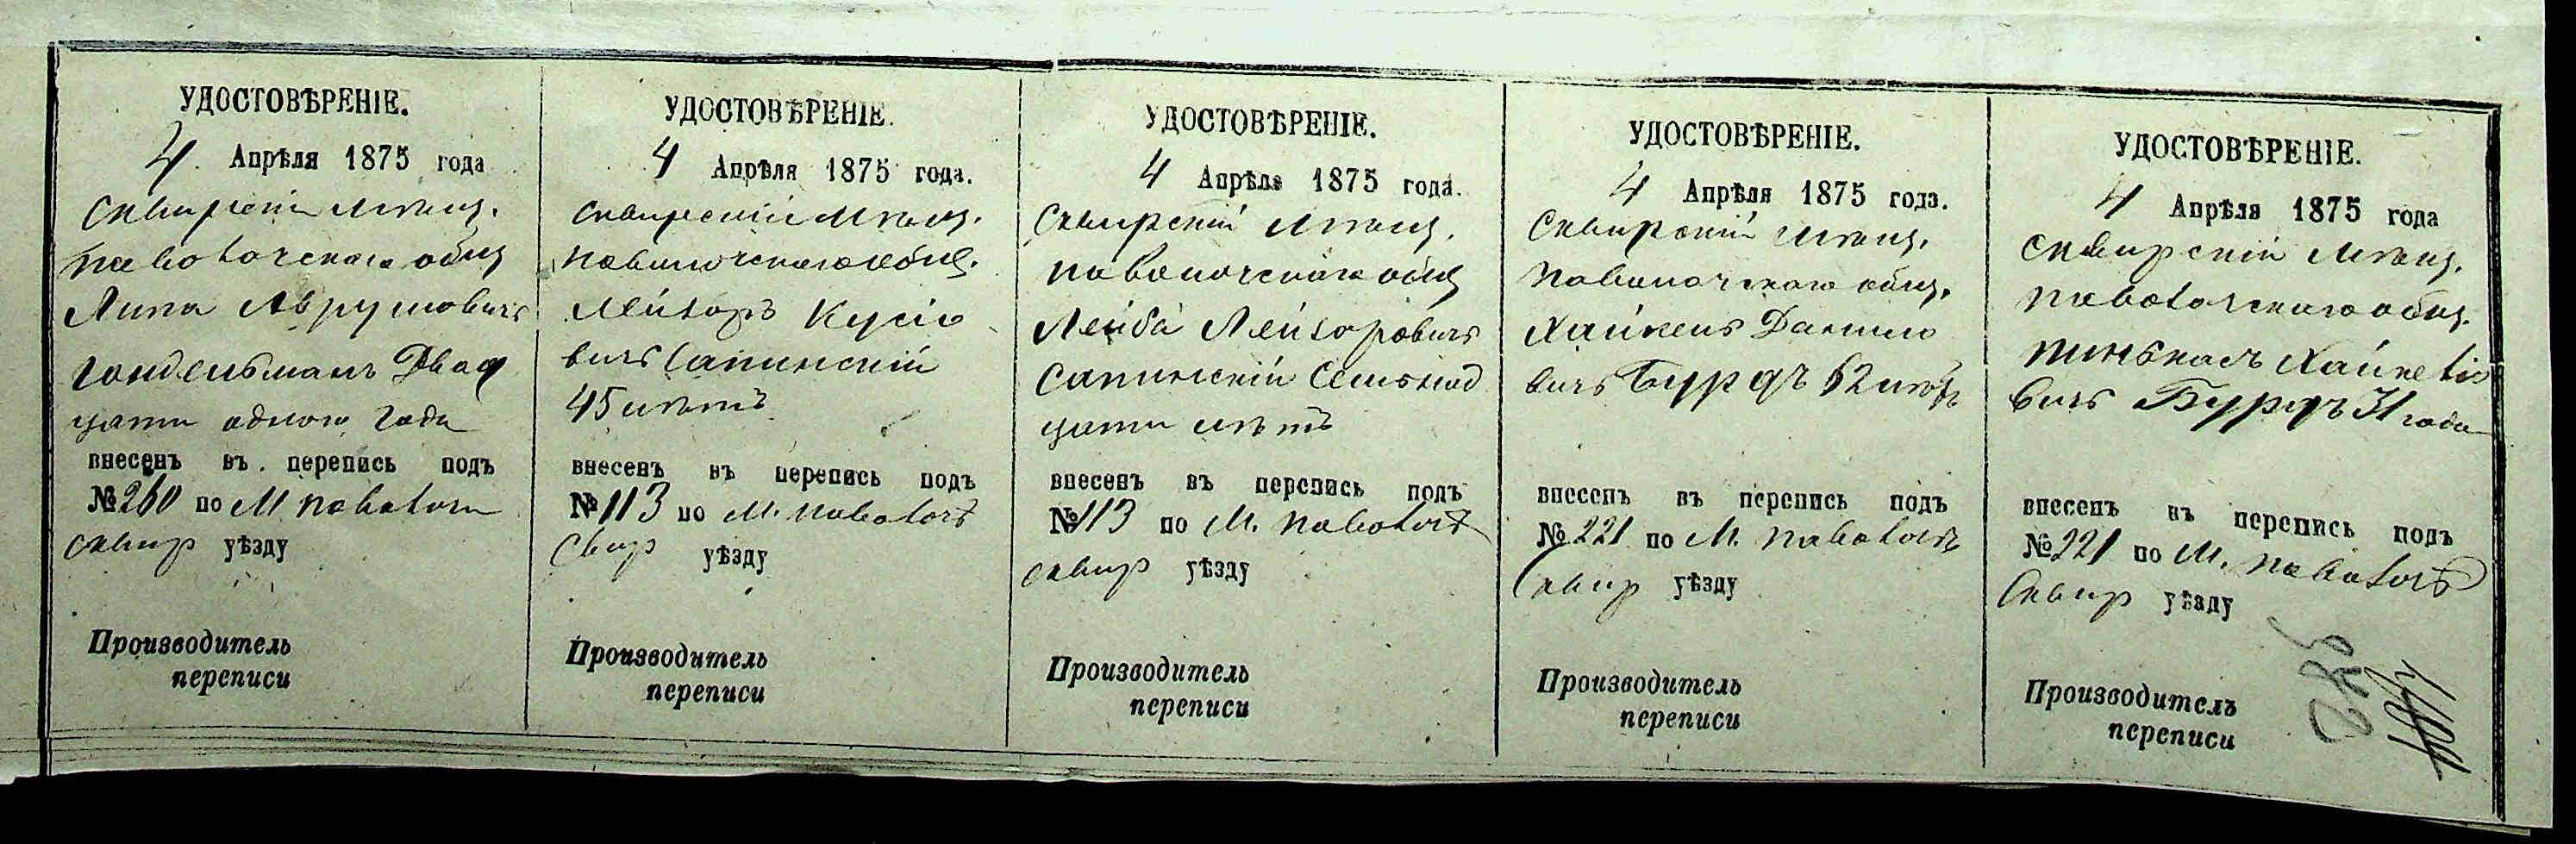 УДОСТОВѢРЕНІЕ.
4 Апрѣля 1875 года
Сквирскій мѣщ.
паволочскаго общ
Липа Аврумовичъ
Гондельманъ Двад
цати одного года
внесенъ въ перепись подъ
№ 260 по М паволочи
сквир уѣзду
Производитель
переписи
УДОСТОВѢРЕНІЕ.
4 Апрѣля 1875 года.
сквирскій мѣщ.
паволочскаго общ.
Лейзоръ Кусіо
вичъ Сапинскій
45 лѣтъ
внесенъ въ перепись подъ
№ 113 по М. паволочѣ
Сквир уѣзду
Производитель
переписи
УДОСТОВѢРЕНІЕ.
4 Апрѣля 1875 года.
Сквирскій мѣщ.
паволочскаго общ
Лейба Лейзоровичъ
Сапинскій Семьнад
цати лѣтъ
внесенъ въ перепись подъ
№ 113 по М. паволочѣ
сквир уѣзду
Производитель
переписи
УДОСТОВѢРЕНІЕ.
4 Апрѣля 1875 года.
Сквирскій мѣщ.
паволочскаго общ.
Хайкель Данило
вичъ Бурдъ 62 лѣтъ
внесенъ въ перепись подъ
№ 221 по М. паволочѣ
Сквир уѣзду
Производитель
переписи
УДОСТОВѢРЕНІЕ.
4 Апрѣля 1875 года
сквирскій мѣщ.
паволочскаго общ.
пинькасъ Хайкелио
вичъ Бурдъ 31 года
внесенъ въ перепись подъ
№ 221 по М. паволочѣ
Сквир уѣзду
Производитель
переписи